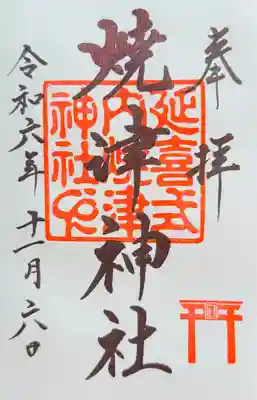 奉拝
延喜式
内焼津
神社印
焼津神社
令和六年十一月六日